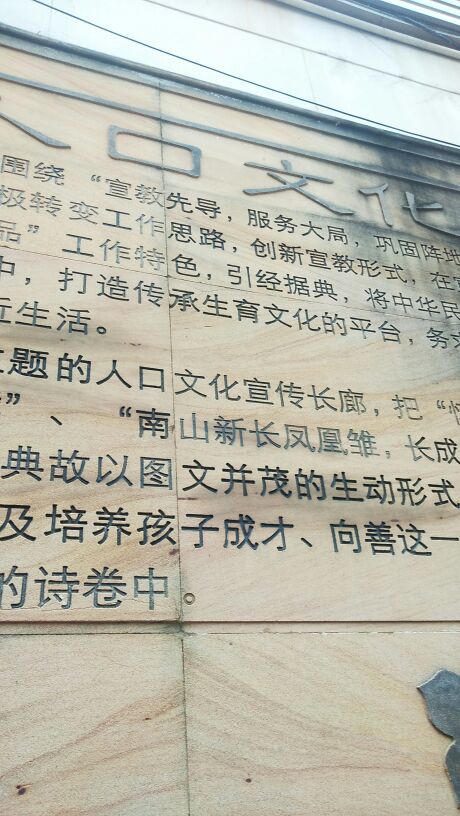 人口文化
围绕“宣教先导，服务大局，巩固阵地
极转变工作思路，创新宣教形式，在
品”工作特色，引经据典，将中华民
中，打造传承生育文化的平台，务求
近生活。
主题的人口文化宣传长廊，把“
”、“南山新长凤凰雏，长成
典故以图文并茂的生动形式
及培养孩子成才、向善这一
的诗卷中。